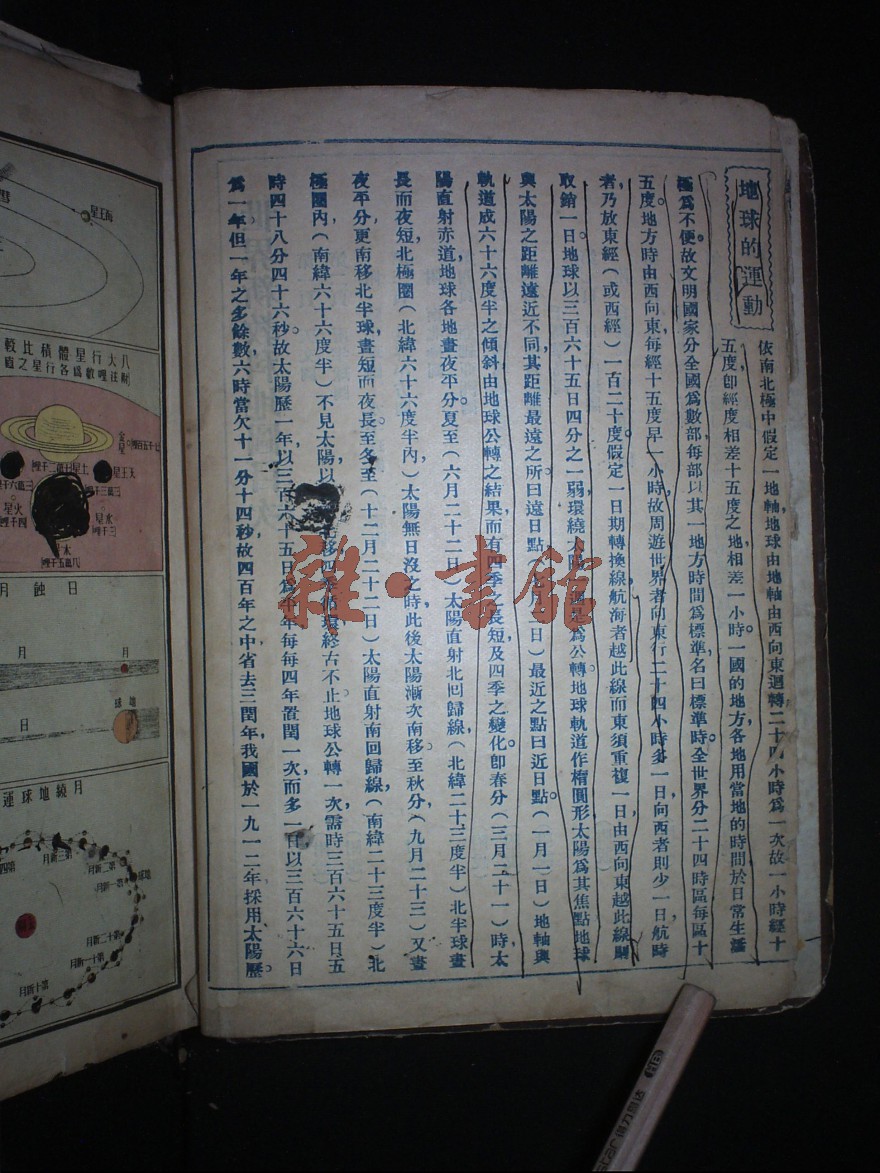 地球的運動
依南北極中假定一地軸地球由地軸由西向東迴轉二十四小時爲一次故一小時經十
五度卽經度相差十五度之地相差一小時一國的地方各地用當地的時間於日常生活
極爲不便故文明國家分全國爲數部每部以其一地方時間爲標準名曰標準時。全世界分二十四時區每區十
五度地方時由西向東每經十五度早一小時故周遊世界者向東行二十四小時多一日向西者則少一日航時
者乃放東經（或西經）一百二十度假定一日期轉換線航海者越此線而東須重複一日由西向東越此線
取銷一日地球以三百六十五日四分之一弱環繞太陽是爲公轉地球軌道作橢圓形太陽爲其焦點地球
與太陽之距離遠近不同其距離最遠之所曰遠日點（七月一日）最近之點曰近日點（一月一日）地軸與
軌道成六十六度半之傾斜由地球公轉之結果而有四季之長短及四季之變化卽春分（三月二十一）時太
陽直射赤道地球各地晝夜平分夏至（六月二十二日）太陽直射北回歸線（北緯二十三度半）北半球晝
長而夜短北極圈（北緯六十六度半內）太陽無日沒之時此後太陽漸次南移至秋分（九月二十三）又晝
夜平分更南移北半球晝短而夜長至冬至（十二月二十二日）太陽直射南回歸線（南緯二十三度半）北
極圈內（南緯六十六度半）不見太陽以終古不止地球公轉一次需時三百六十五日五
時四十八分四十六秒故太陽歷一年以三百六十五日爲平年每每四年置閏一次而多一日以三百六十六日
爲一年但一年之多餘數六時當欠十一分十四秒故四百年之中省去三閏年我國於一九一二年採用太陽歷。
雜·書館
海王星
八大行星體積比較
附註哩數爲各行星之直
金星
天王星
土星
水星
火星
太
日蝕月
月 月
地球 日
月繞地球運